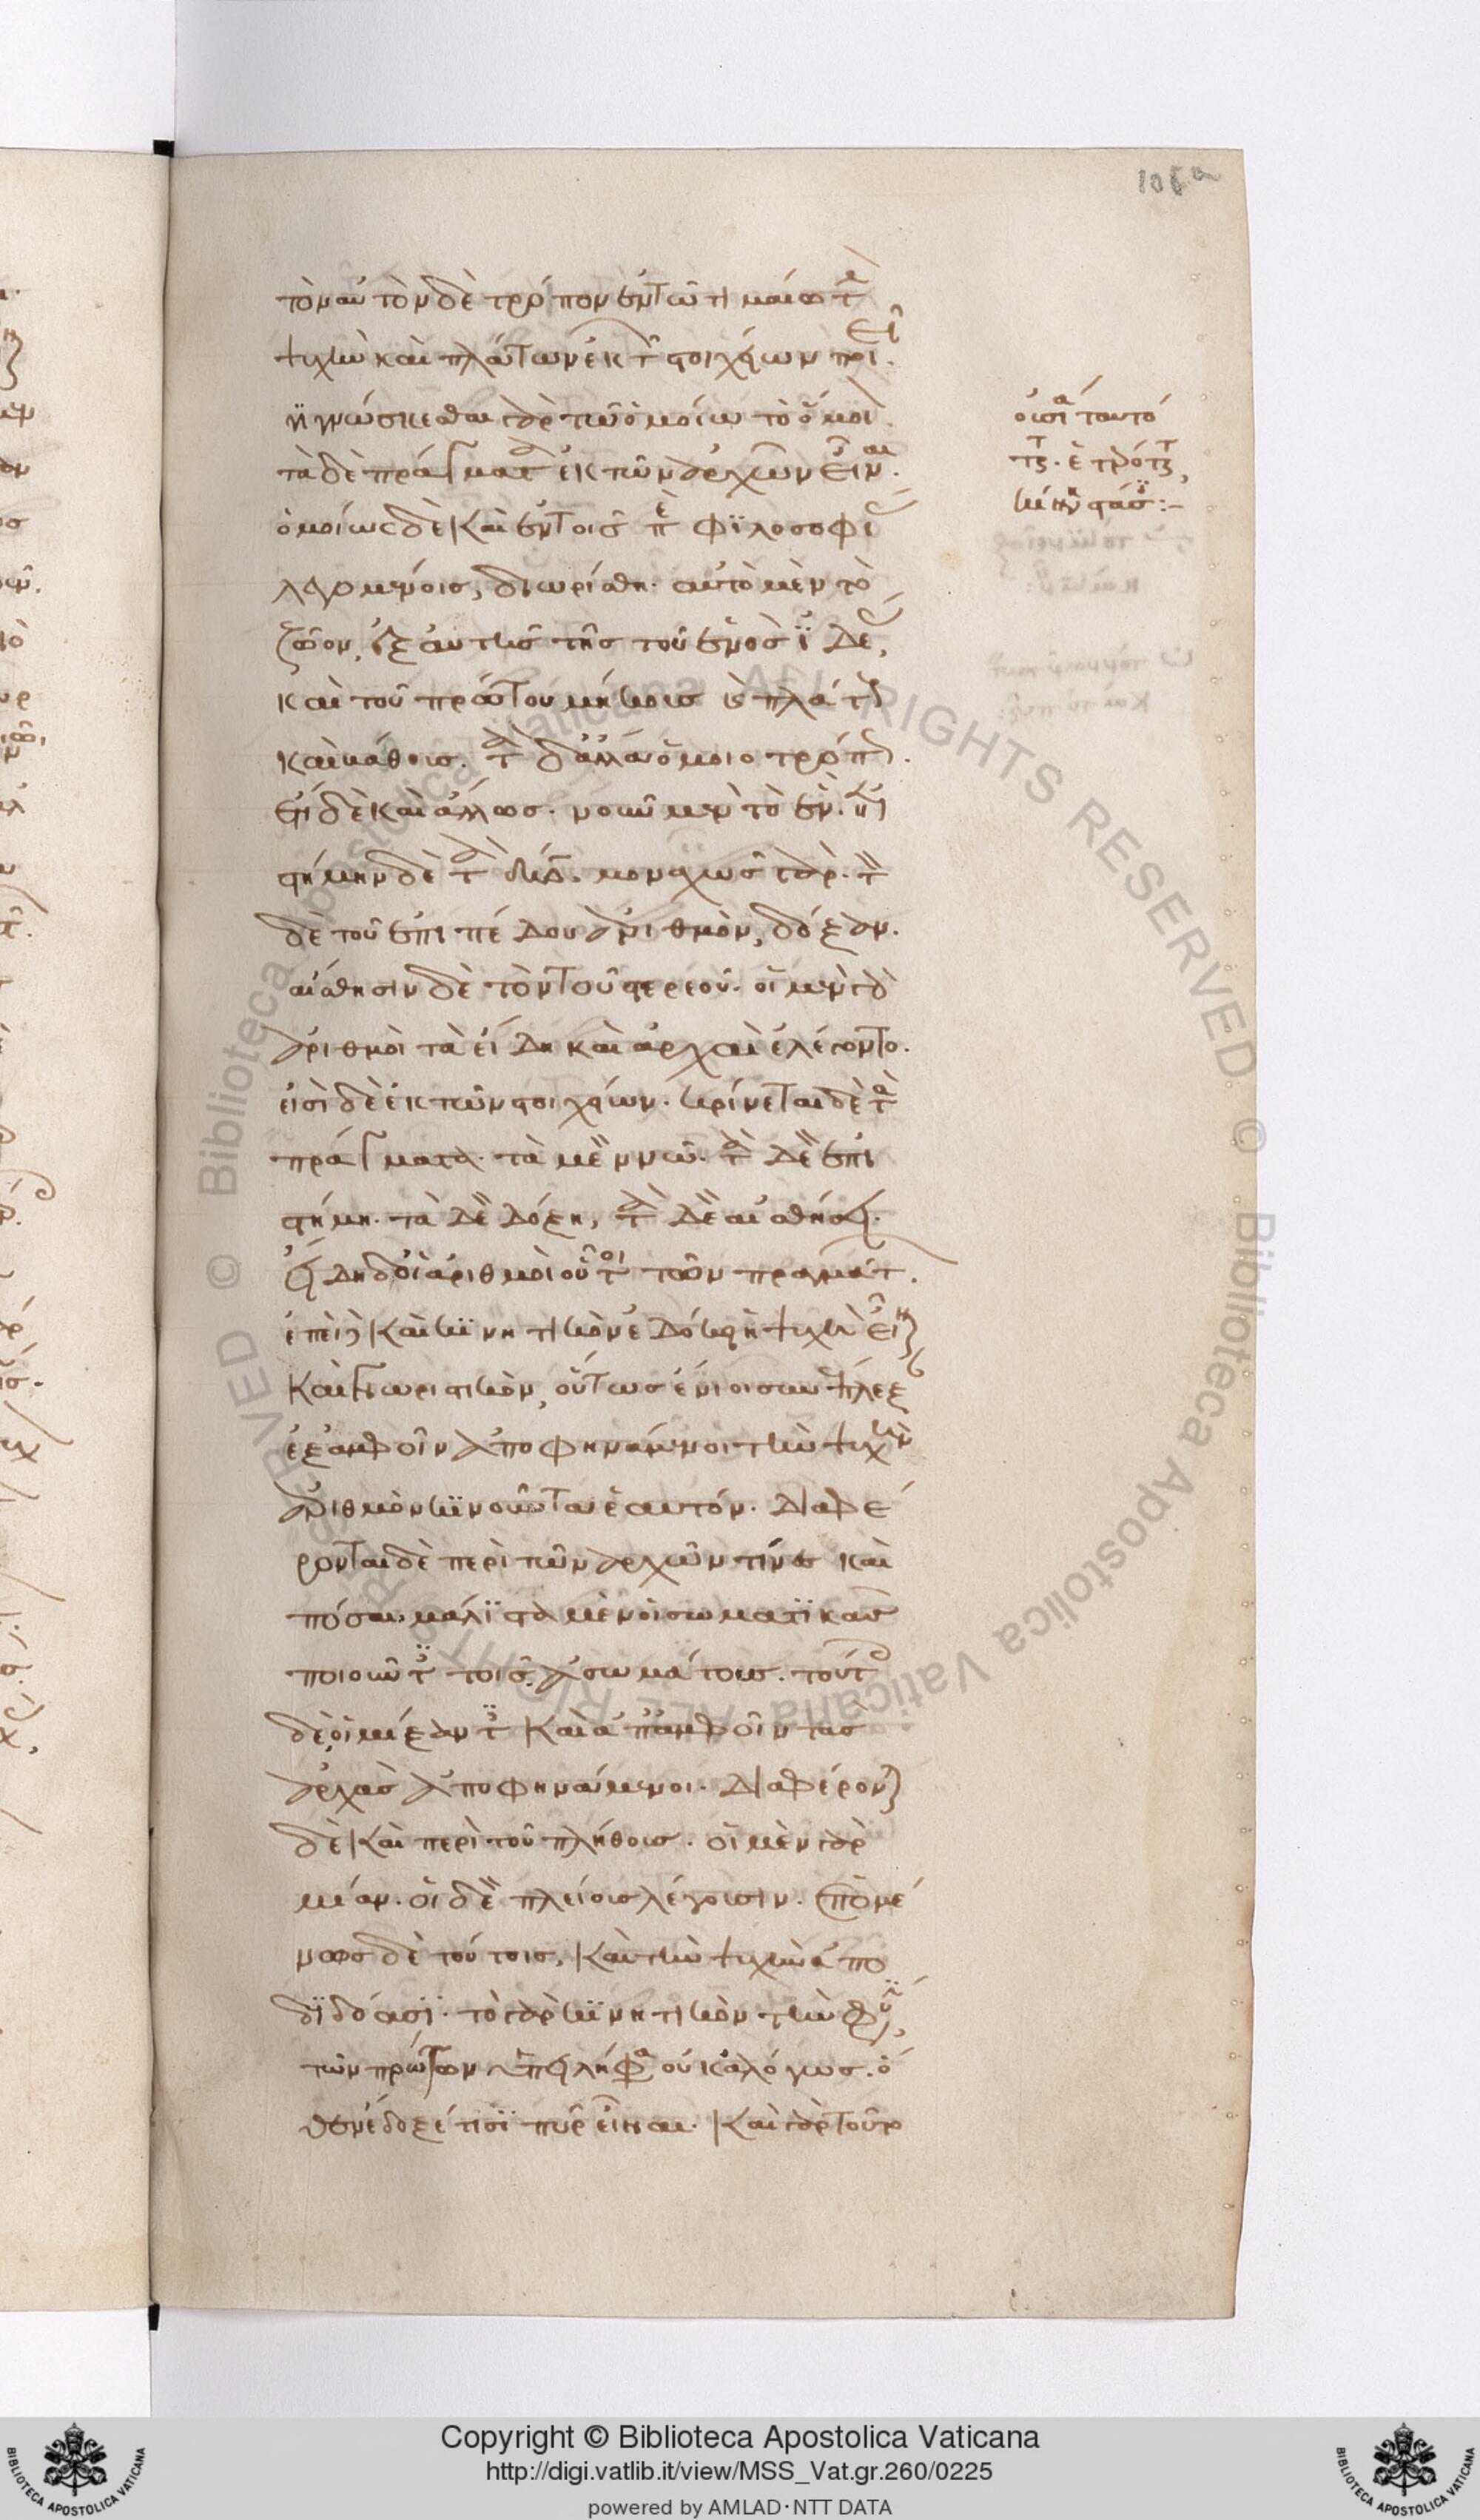 106a
τὸν αὐτὸν δὲ τρόπον ἐν τῶ τιμαίω τ
ψυχὴν καὶ πλάτων ἐκ τ στοιχείων ποιεῖ.
γινώσκεσθαι γὰρ τῶ ὁμοίω τὸ ὅμοι.
τὰ δὲ πράγματα ἐκ τῶν ἀρχῶν εἶναι.
ὁμοίως δὲ καὶ ἐν τοῖς πε φιλοσοφί
λεγομένοις, διωρίσθη. αὐτὸ μὲν τὸ
ζῶον, ἐξ αὐτῆς τῆς τοῦ ἑνὸς ἰδέ,
καὶ τοῦ πρώτου μήκους καὶ πλάτους
καὶ βάθους. τὰ δ' ἄλλα ὁμοιοτρόπως.
ἔτι δὲ καὶ ἄλλως. νοῦν μὲν τὸ ἕν. ἐπι
στήμην δὲ τὰ δύο. μοναχῶς γὰρ. τὸν
δὲ τοῦ ἐπιπέδου ἀριθμὸν, δόξαν.
αἴσθησιν δὲ τὸν τοῦ στερεοῦ. οἱ μὲν γὰρ
ἀριθμοὶ τὰ εἴδη καὶ ἀρχαὶ ἐλέγοντο.
εἰσὶ δὲ ἐκ τῶν στοιχείων. κρίνεται δὲ τὰ
πράγματα. τὰ μὲν νῶ. τὰ δὲ ἐπι
στήμη. τὰ δὲ δόξη, τὰ δὲ αἰσθήσει.
εἴδη δ' οἱ ἀριθμοὶ οὗτοι τῶν πραγμάτ.
ἐπεὶ καὶ κινητικὸν ἐδόκει ἡ ψυχὴ εἶναι
καὶ γνωριστικὸν, οὕτως ἔνιοι συνέπλεξ
ἐξ ἀμφοῖν ἀποφηνάμενοι τὴν ψυχὴν
ἀριθμὸν κινοῦντα ἑαυτόν. διαφέ
ρονται δὲ περὶ τῶν ἀρχῶν τίνες καὶ
πόσαι. μάλιστα μὲν οἱ σωματικὰς
ποιοῦντ τοῖς ἀσωμάτους. τούτ
δὲ, οἱ μίξαντ καὶ ἀπ' ἀμφοῖν τὰς
ἀρχὰς ἀποφηνάμενοι. διαφέρονται
δὲ καὶ περὶ τοῦ πλήθους. οἱ μὲν γὰρ
μίαν. οἱ δὲ πλείους λέγουσιν. ἑπομέ
νως δὲ τούτοις, καὶ τὴν ψυχὴν ἀπο
διδόασι. τὸ γὰρ κινητικὸν τὴν φύσιν,
τῶν πρώτων ὑπειλήφασιν οὐκ ἀλόγως. ὅ
θεν ἔδοξέ τισι πῦρ εἶναι. καὶ γὰρ τοῦτο
οὐσία ταυτό
της. ἑτερότης,
κίνησις στάσις:-
Copyright © Biblioteca Apostolica Vaticana
http://digi.vatlib.it/view/MSS_Vat.gr.260/0225
powered by AMLAD·NTT DATA